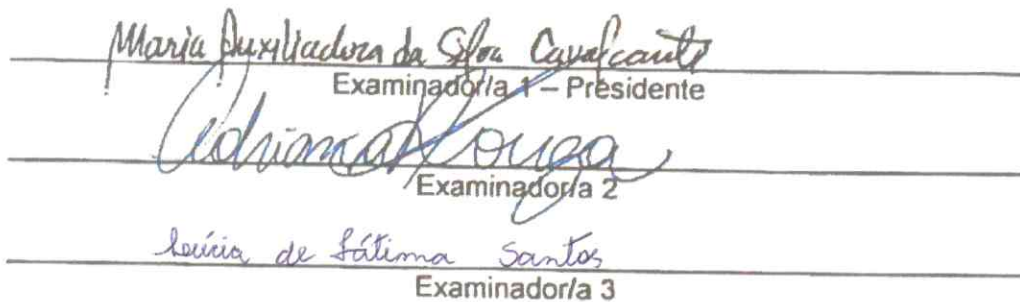 Maria Auxiliadora da Silva Cavalcante
Examinador/a 1 – Presidente
Adriana
Examinador/a 2
de Fátima Santos
Examinador/a 3